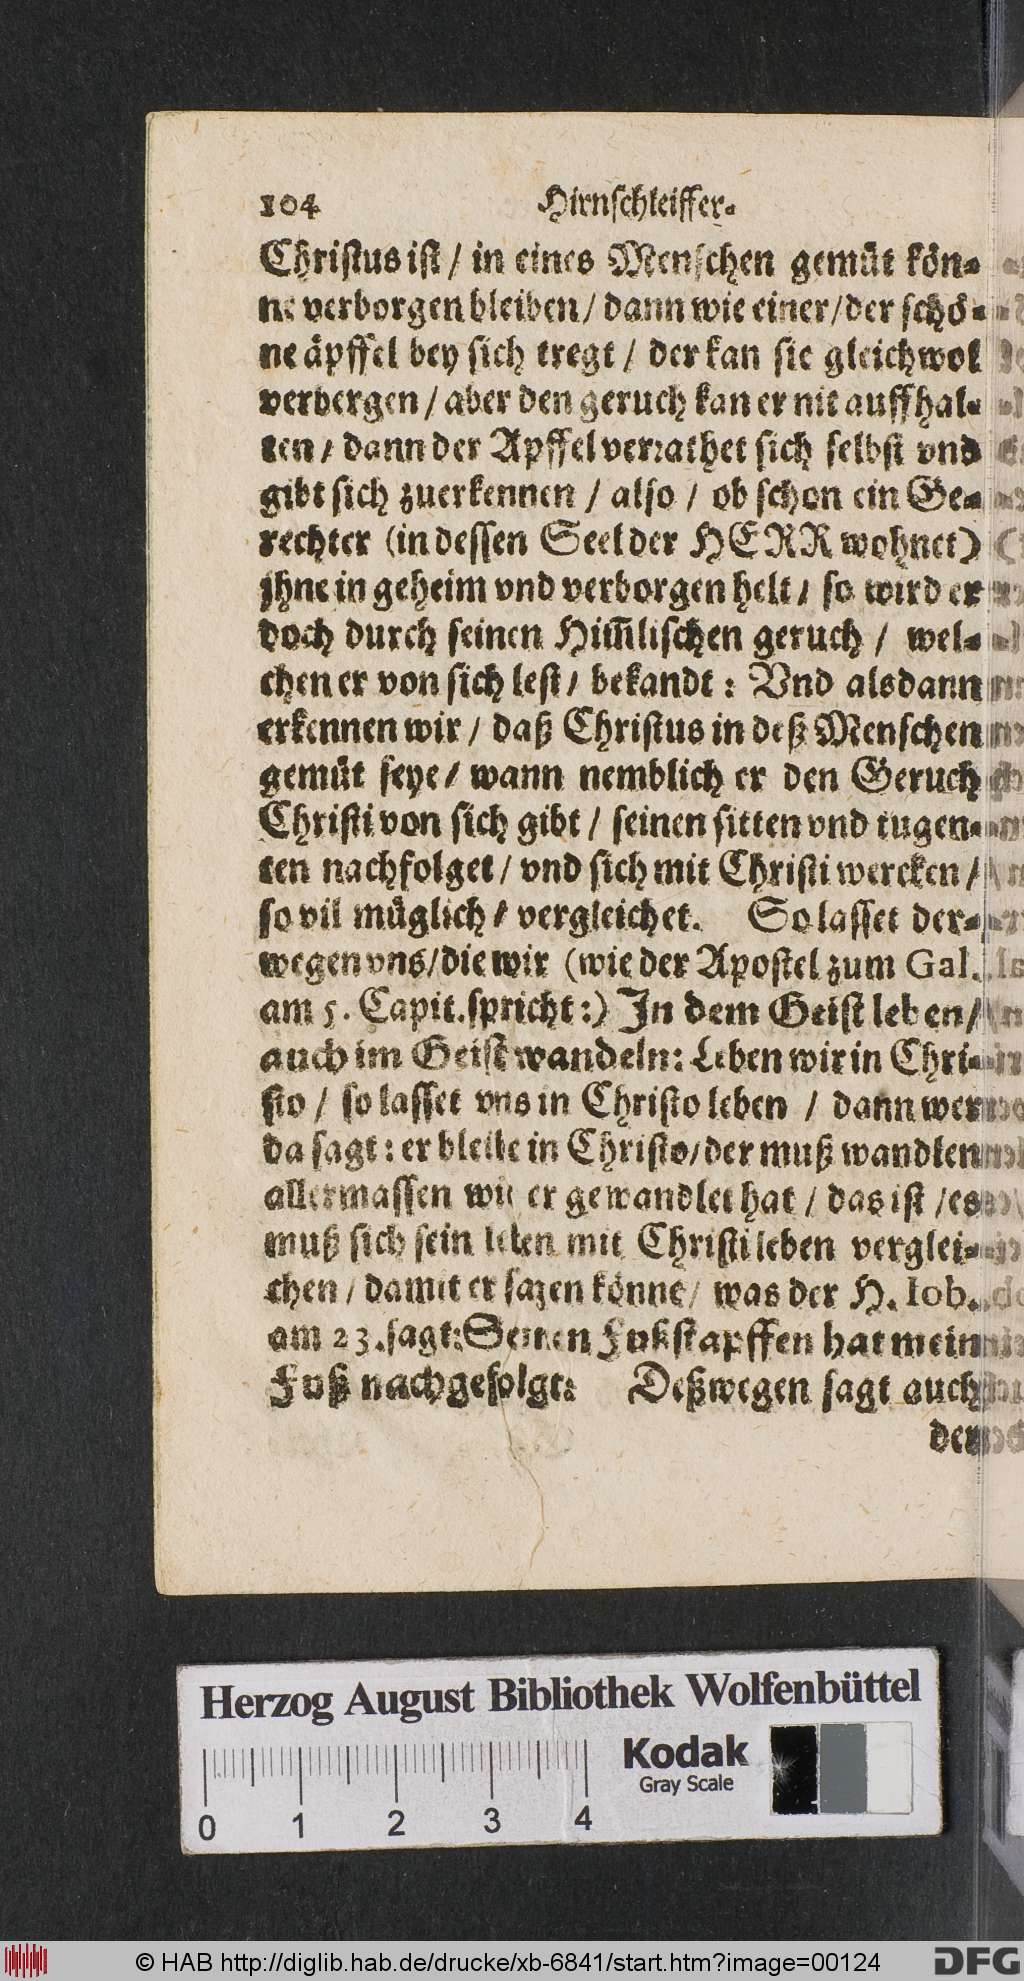 104 Hirnschleiffer.
Christus ist / in eines Menschen gemüt kön-
ne verborgen bleiben / dann wie einer / der schö-
ne äpffel bey sich tregt / der kan sie gleichwol
verbergen / aber den geruch kan er nit auffhal-
ten / dann der Apffel verrathet sich selbst vnd
gibt sich zuerkennen / also / ob schon ein Ge-
rechter (in dessen Seel der HERR wohnet)
jhne in geheim vnd verborgen helt / so wird er
doch durch seinen Him̄lischen geruch / wel-
chen er von sich lest / bekandt : Vnd alsdann
erkennen wir / daß Christus in deß Menschen
gemüt seye / wann nemblich er den Geruch
Christi von sich gibt / seinen sitten vnd tugen-
ten nachfolget / vnd sich mit Christi wercken /
so vil müglich / vergleichet. So lasset der-
wegen vns / die wir (wie der Apostel zum Gal.
am 5. Capit. spricht :) In dem Geist leben /
auch im Geist wandeln : Leben wir in Chri-
sto / so lasset vns in Christo leben / dann wer
da sagt : er bleibe in Christo / der muß wandlen
allermassen wie er gewandlet hat / das ist / es
muß sich sein leben mit Christi leben verglei-
chen / damit er sagen könne / was der H. Iob.
am 23. sagt : Seinen Fußstapffen hat mein
Fuß nachgefolgt : Deßwegen sagt auch
der
Herzog August Bibliothek Wolfenbüttel
Kodak
Gray Scale
0 1 2 3 4
© HAB http://diglib.hab.de/drucke/xb-6841/start.htm?image=00124
DFG